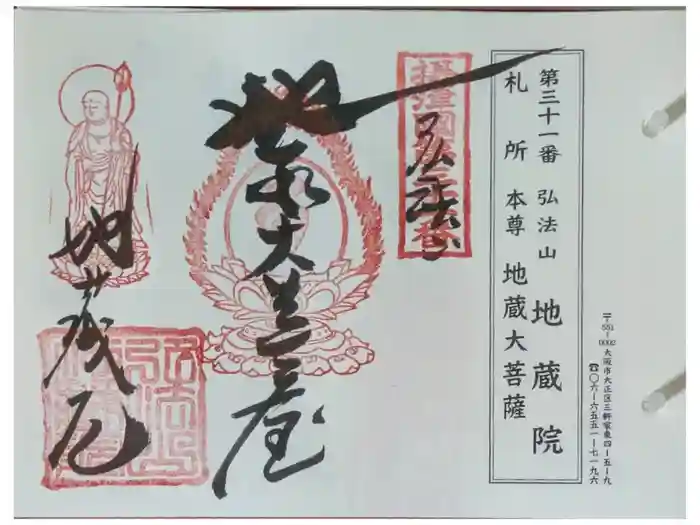 〒551-0002 大阪市大正区三軒家東四-五-九
☎〇六-六五五一-七一九六
第三十一番 弘法山 地蔵院
札所本尊 地蔵大菩薩
弘法山
地蔵大菩薩
地蔵院